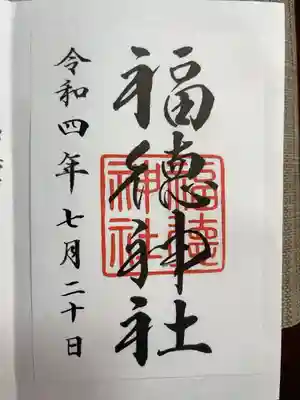 福徳神社
福徳
神社
令和四年七月二十日